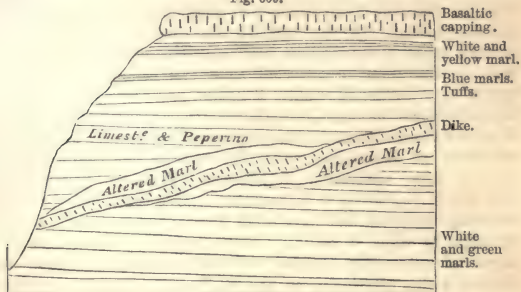 Basaltic
capping.
White and
yellow marl.
Blue marls.
Tuffs.
Limestº & Peperino
Dike.
Altered Marl
Altered Marl
White
and green
marls.